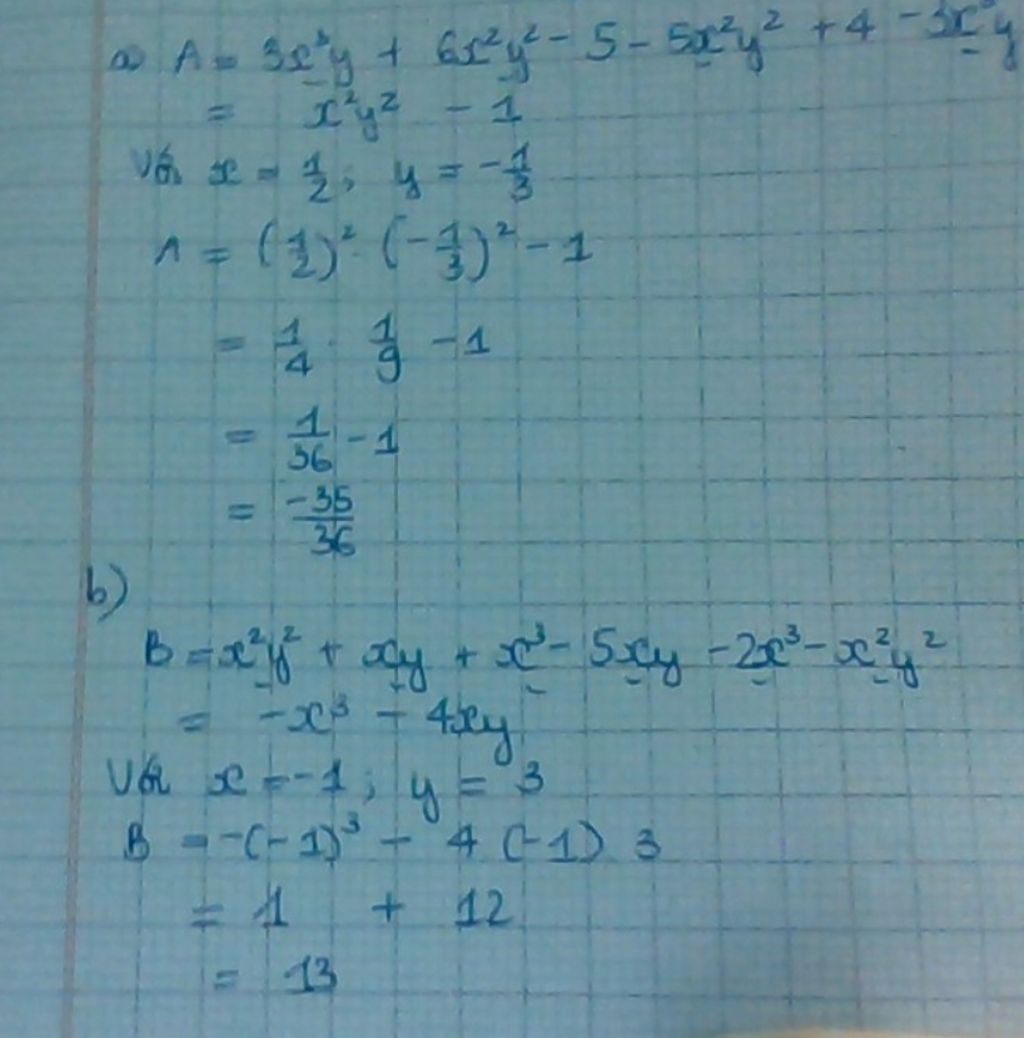 a) A = 3x³y + 6x²y² - 5 - 5x²y² + 4 - 3x³y
= x²y² - 1
Với x = 1/2; y = -1/3
A = (1/2)² . (-1/3)² - 1
= 1/4 . 1/9 - 1
= 1/36 - 1
= -35/36
b)
B = x²y² + xy + x³ - 5xy - 2x³ - x²y²
= -x³ - 4xy
Với x = -1; y = 3
B = -(-1)³ - 4 (-1) 3
= 1 + 12
= 13